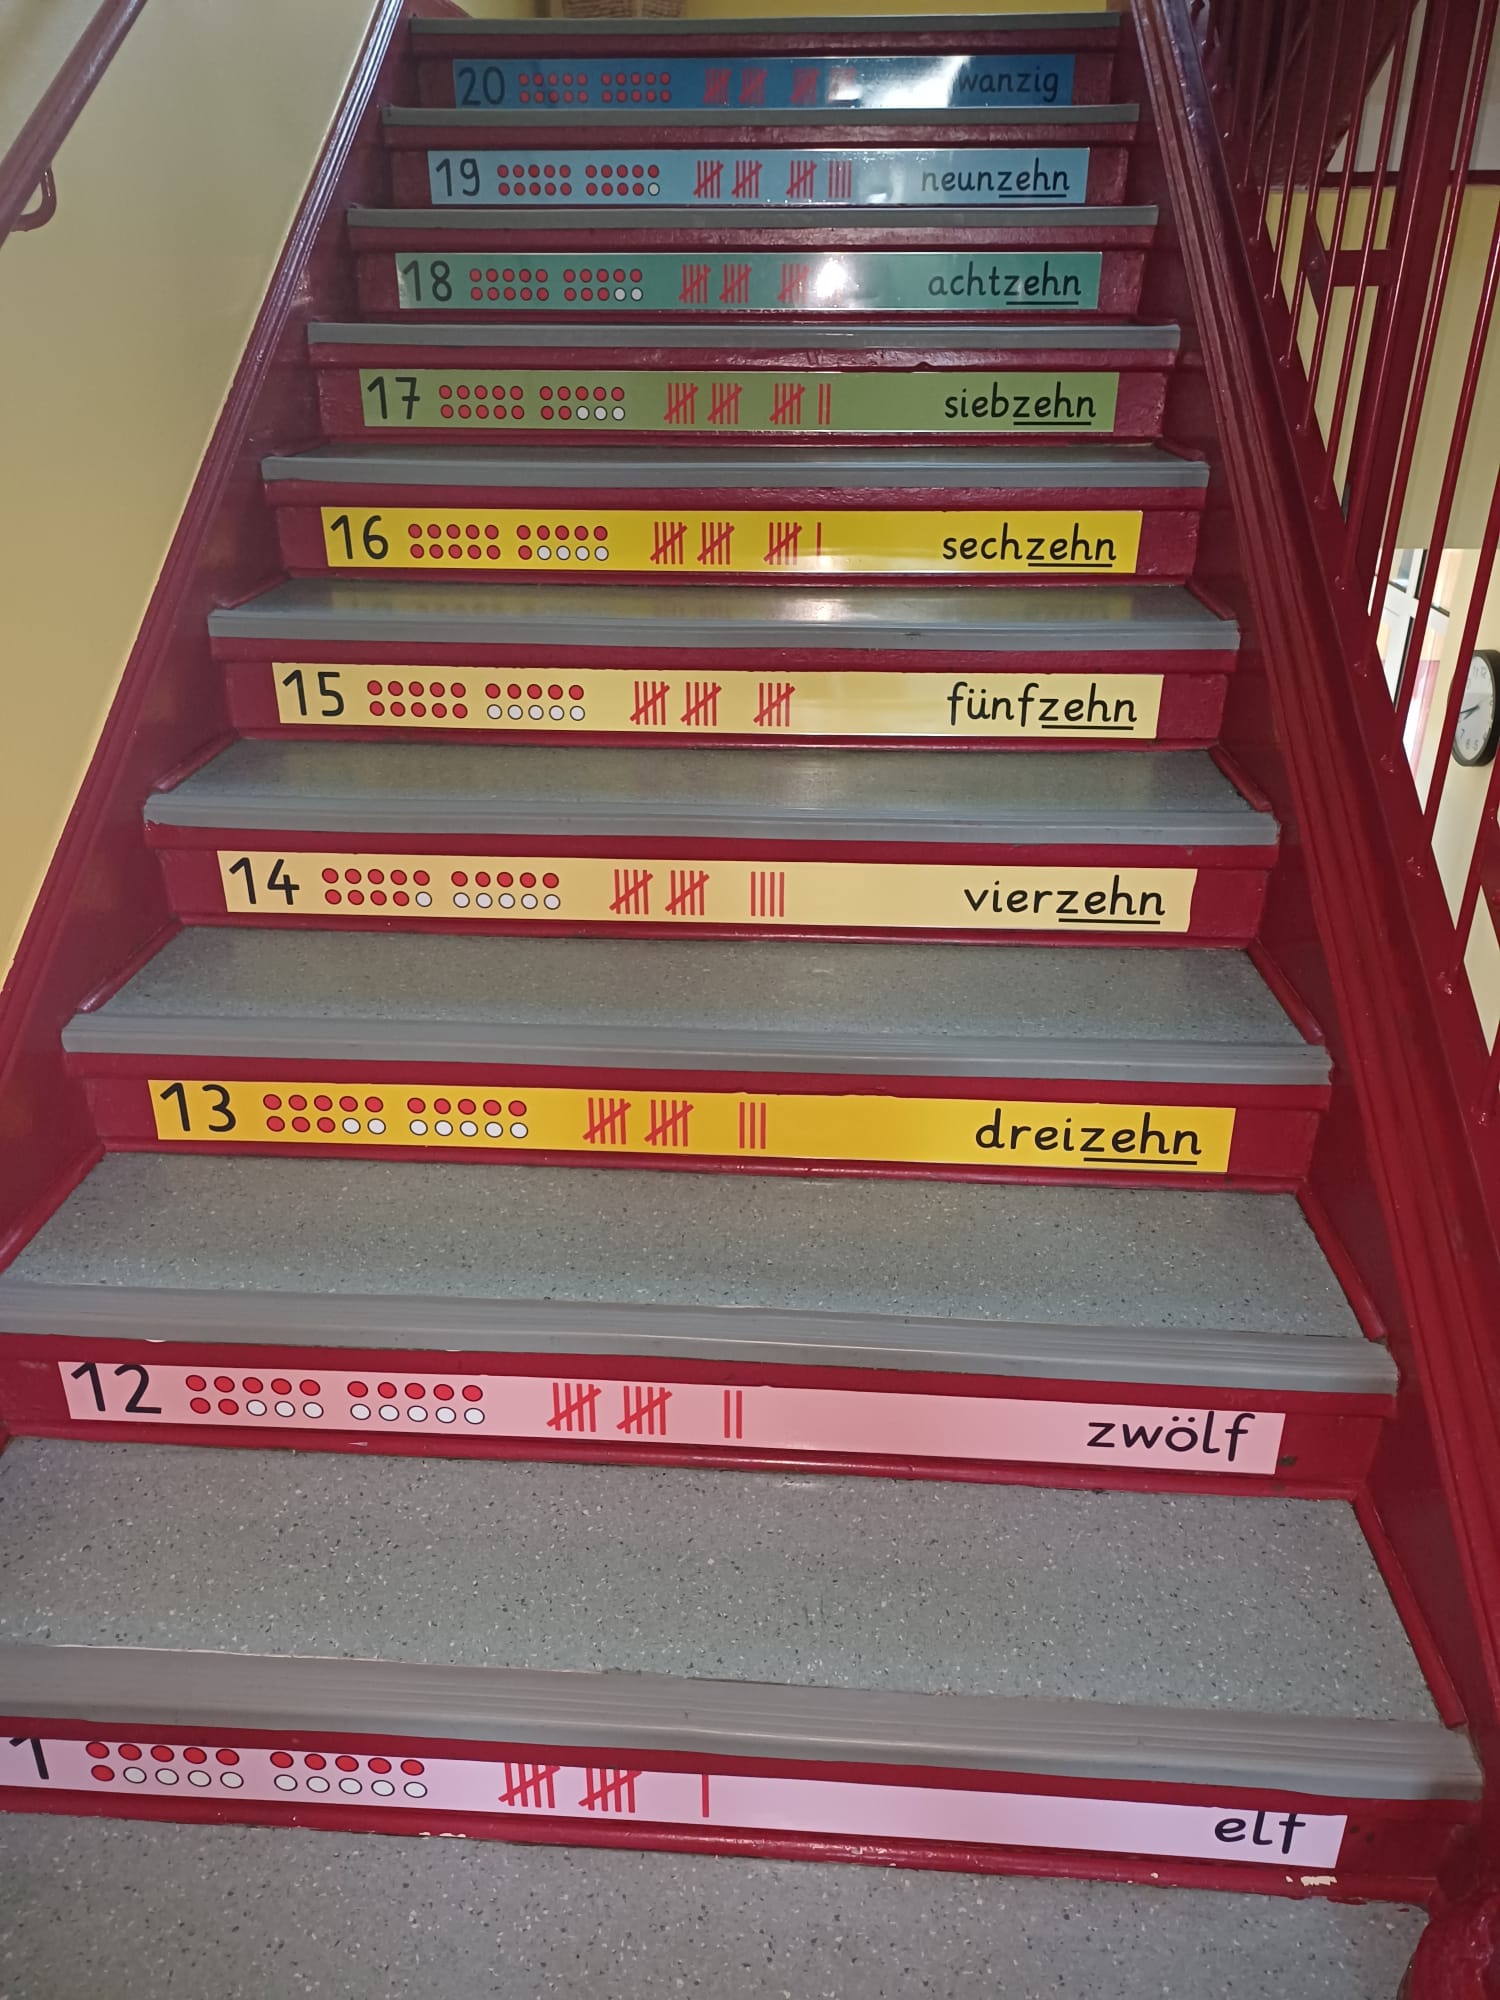 20 wanzig
19 neunzehn
18 achtzehn
17 siebzehn
16 sechzehn
15 fünfzehn
14 vierzehn
13 dreizehn
12 zwölf
1 elf